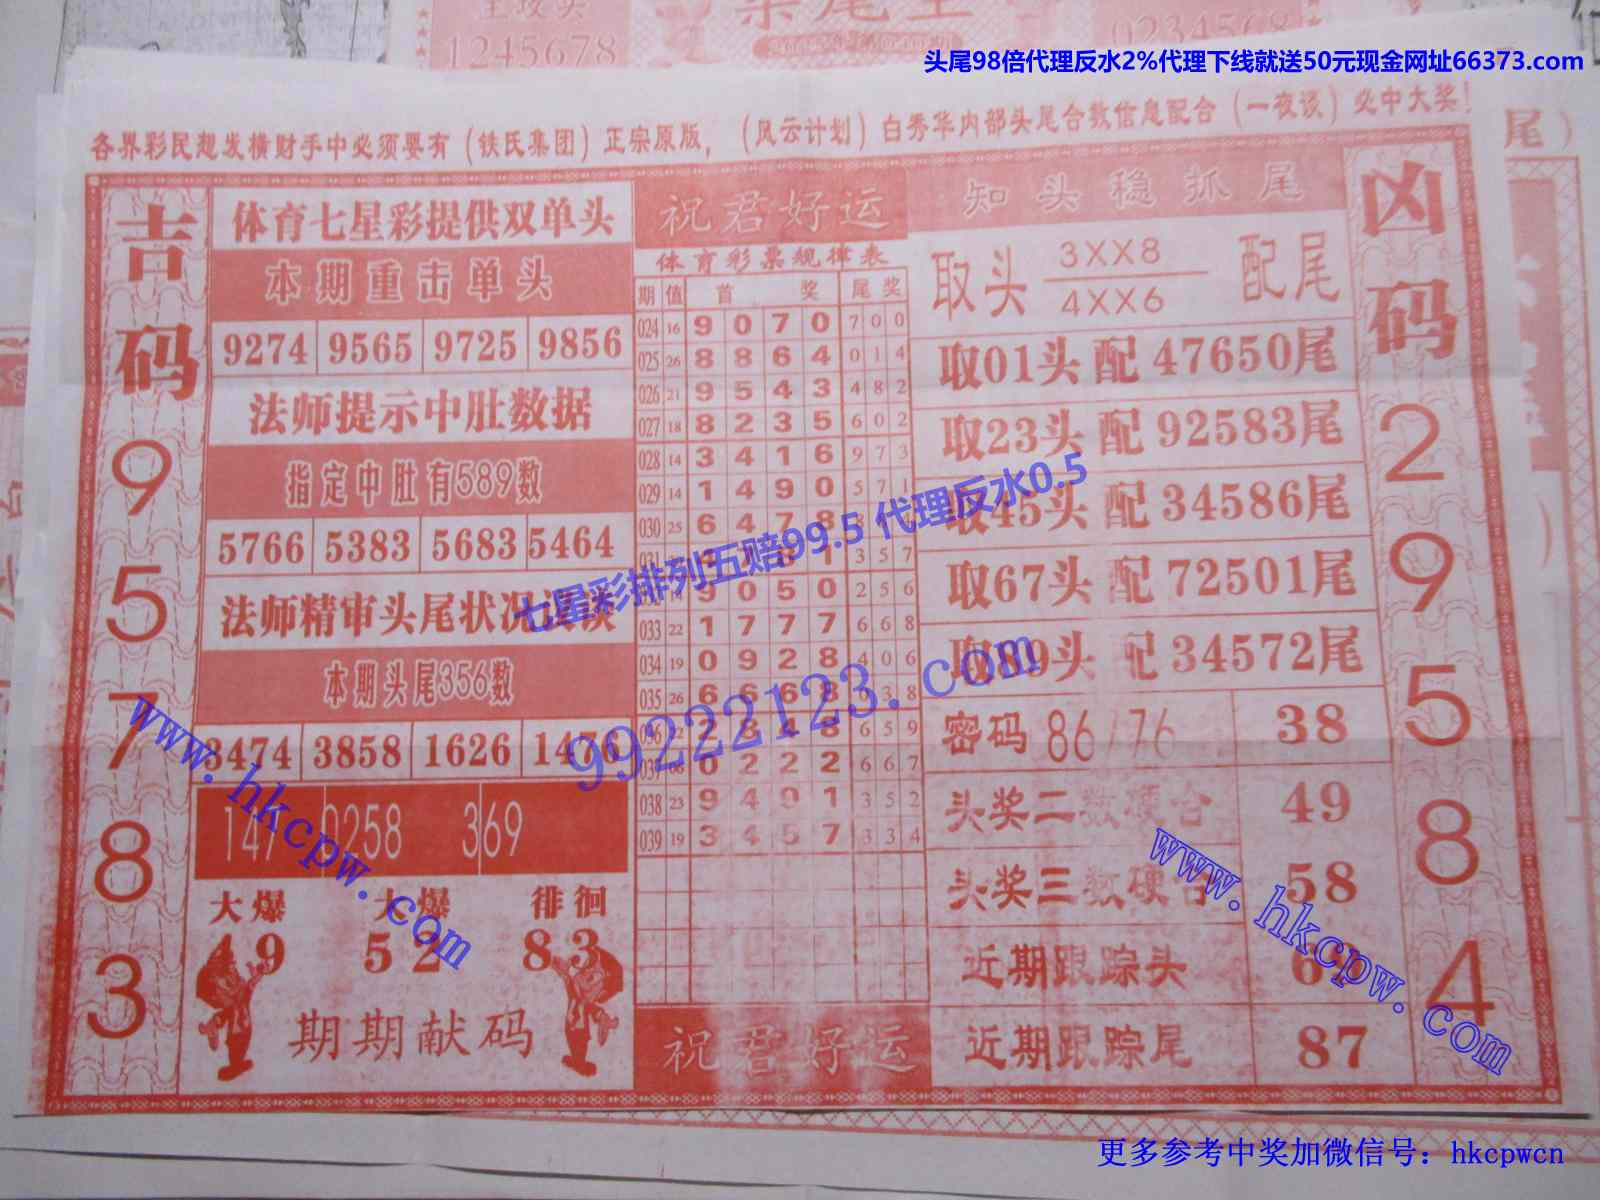 1245678
0234568
头尾98倍代理反水2%代理下线就送50元现金网址66373.com
各界彩民想发横财手中必须要有（铁氏集团）正宗原版，（风云计划）白秀华内部头尾合数信息配合（一夜谈）必中大奖！
尾）
吉码
9
5
7
8
3
体育七星彩提供双单头
本期重击单头
9274 9565 9725 9856
法师提示中肚数据
指定中肚有589数
5766 5383 5683 5464
法师精审头尾状况
本期头尾356数
3474 3858 1626 1476
147 0258 369
大爆 大爆 徘徊
49 52 83
期期献码
祝君好运
体育彩票规律表
期 值 首 奖 尾 奖
024 16 9 0 7 0 7 0 0
025 26 8 8 6 4 0 1 4
026 21 9 5 4 3 4 8 2
027 18 8 2 3 5 6 0 2
028 14 3 4 1 6 9 7 3
029 14 1 4 9 0 5 7 1
030 25 6 4 7 8
031 1 3 5 7
9 0 5 0 2 5 6
033 22 1 7 7 7 6 6 8
034 19 0 9 2 8 4 0 6
035 26 6 6 6 8 3 8
036 22 2 8 4 8 6 5 9
037 06 0 2 2 2 6 6 7
038 23 9 4 9 1 3 5 2
039 19 3 4 5 7 3 3 4
祝君好运
知头稳抓尾
取头 3XX8 配尾
4XX6
取01头 配 47650尾
取23头 配 92583尾
取45头 配 34586尾
取67头 配 72501尾
取89头 配 34572尾
密码 86/76 38
头奖二数硬合 49
头奖三数硬合 58
近期跟踪头
近期跟踪尾 87
凶码
2
9
5
8
4
七星彩排列五赔99.5 代理反水0.5
99222123.com
www.hkcpw.com
www.hkcpw.com
更多参考中奖加微信号：hkcpwcn